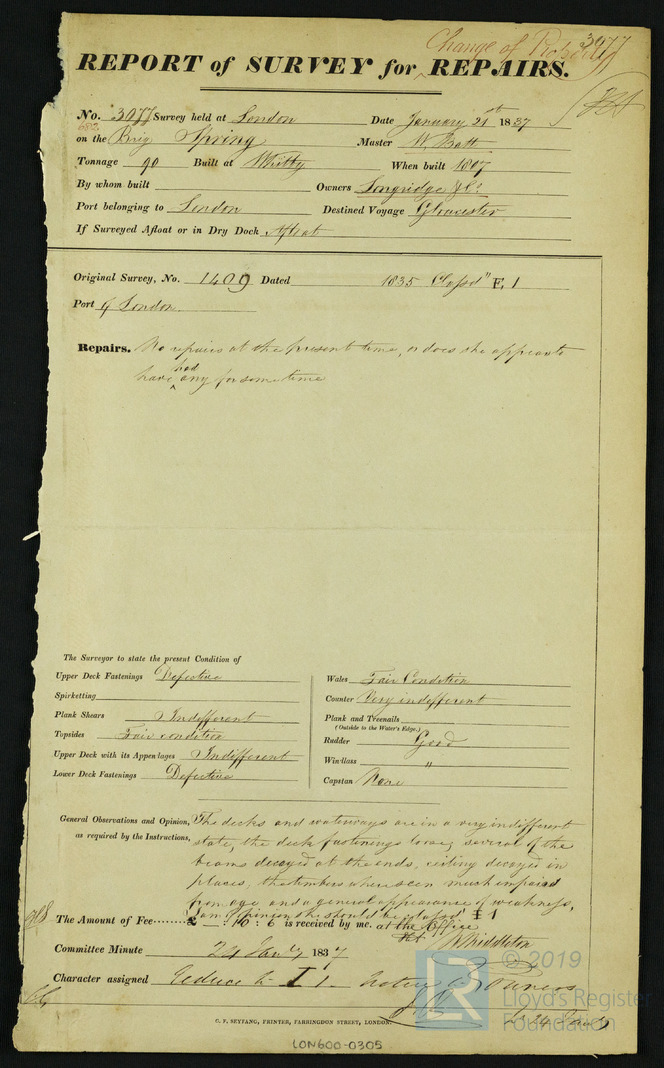 Change of Property
3077
REPORT of SURVEY for REPAIRS.
No. 3077 Survey held at London Date January 21st 1837
682
on the Brig Spring Master W Batt
Tonnage 90 Built at Whitby When built 1807
By whom built Owners Longridge & Co.
Port belonging to London Destined Voyage Gloucester
If Surveyed Afloat or in Dry Dock Afloat
Original Survey, No. 1409 Dated 1835 Classd" E, 1
Port of London
Repairs. No repairs at the present time, or does she appear to
have had any for some time
The Surveyor to state the present Condition of
Upper Deck Fastenings Defective
Spirketting
Plank Shears Indifferent
Topsides Fair condition
Upper Deck with its Appendages Indifferent
Lower Deck Fastenings Defective
Wales Fair Condition
Counter Very indifferent
Plank and Treenails
(Outside to the Water's Edge.)
Rudder Good
Windlass "
Capstan None
General Observations and Opinion, The decks and waterways are in a very indifferent
as required by the Instructions, state, the deck fastenings loose, several of the
beams decayed at the ends, ceiling decayed in
places, the timbers where seen much impaired
from age, and a general appearance of weakness,
I am of opinion she should be classed I 1
The Amount of Fee ...... £ — : 10 : 6 is received by me. at the Office
W Middleton
Committee Minute 24 Jany 1837
Character assigned Reduce to I 1 — Notice to Owners
24 Jany
C. F. SEYFANG, PRINTER, FARRINGDON STREET, LONDON.
LON600-0305
© 2019
LR
Lloyd's Register
Foundation